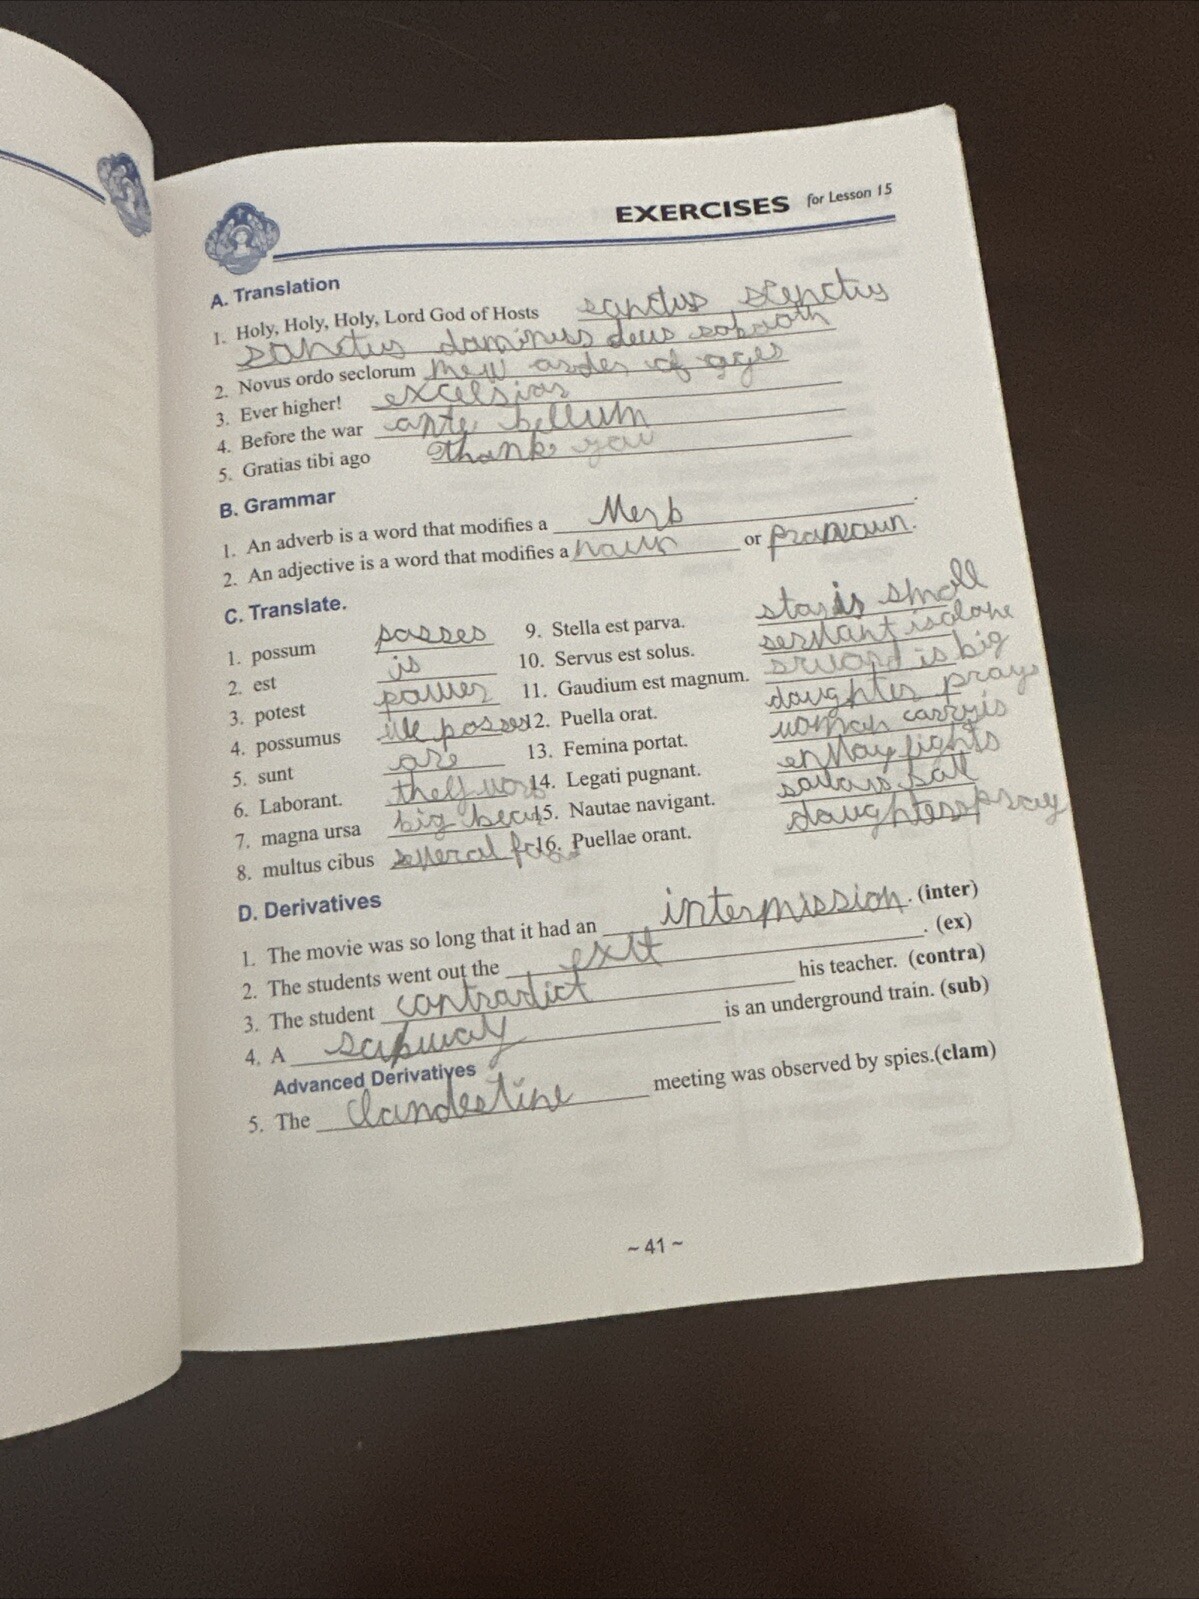 EXERCISES for Lesson 15
A. Translation
1. Holy, Holy, Holy, Lord God of Hosts sanctus sanctus
sanctus dominus deus sabaoth
2. Novus ordo seclorum new order of ages
3. Ever higher! excelsior
4. Before the war ante bellum
5. Gratias tibi ago thank you
B. Grammar
1. An adverb is a word that modifies a Verb.
2. An adjective is a word that modifies a noun or pronoun.
C. Translate.
1. possum posses
2. est is
3. potest power
4. possumus we posses
5. sunt are
6. Laborant. they work
7. magna ursa big bear
8. multus cibus several
9. Stella est parva. star is small
10. Servus est solus. servant is alone
11. Gaudium est magnum. is big
12. Puella orat. daughter prays
13. Femina portat. woman carrys
14. Legati pugnant. envoy fights
15. Nautae navigant. sailors sail
16. Puellae orant. daughters pray
D. Derivatives
1. The movie was so long that it had an intermission. (inter)
2. The students went out the exit. (ex)
3. The student contradict his teacher. (contra)
4. A subway is an underground train. (sub)
Advanced Derivatives
5. The clandestine meeting was observed by spies.(clam)
~ 41 ~